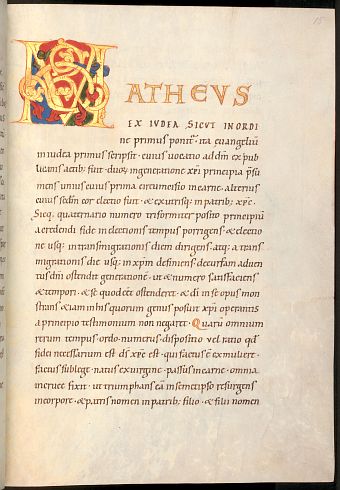 15
MATHEVS
EX IVDEA SICUT IN ORDI
ne primus ponitᷣ · ita euangeliũ
in iudea primus scripsit · cuius uocatio ad dm̃ ex pub
licanis actib; fuit · duoꝝ in generatione xp̃i principia p̃su
mens · unius cuius prima circumcisio in carne · alterius
cuius sedm̃ cor electio fuit · & ex utrisq; in patrib; xp̃c ·
Sicq; quaternario numero triformiter posito · principiũ
a credendi fide in electionis tempus porrigens · & electio
ne usq; in transmigrationis diem dirigens · atq; a trans
migrationis die usq; in xp̃m definiens · decursam aduen
tus dn̄i ostendit generatione · ut & numero satisfaciens
& tempori · & se quod eēt ostenderet · & dī in se opus mon
strans · & iam in his quorum genus posuit xp̃i operantis
a principio testimonium non negaret · Quarũ omnium
rerum tempus · ordo · numerus · dispositio · uel ratio qđ
fidei necessarium est · ds̄ xp̃c est · qui factus ē ex muliere ·
factus sub lege · natus ex uirgine · passus in carne · omnia
in cruce fixit · ut triumphans ea in semetipso · resurgens
in corpore · & patris nomen in patrib; filio · & filii nomen